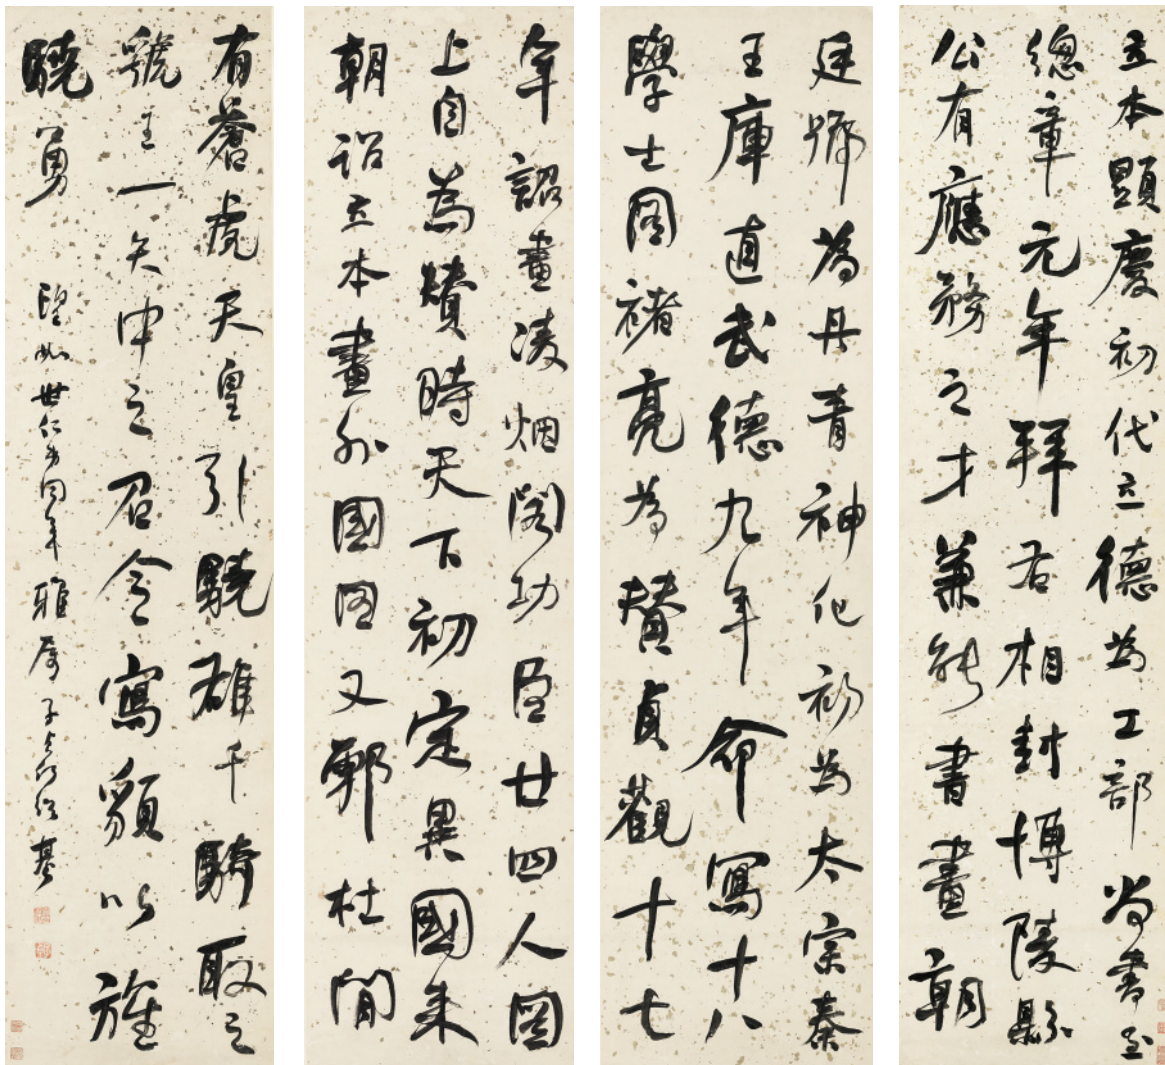 立本顯慶初代立德為工部尚書至
總章元年拜右相封博陵縣
公有應務之才兼能書畫朝
廷號為丹青神化初為太宗秦
王庫直武德九年命寫十八
學士圖褚亮為贊貞觀十七
年詔畫凌烟閣功臣廿四人圖
上自為贊時天下初定異國來
朝詔立本畫外國圖又鄠杜間
有蒼虎天皇引驍雄千騎取之
虢王一矢中之召令寫貌以旌
驍勇
世仁弟同年雅屬 子貞何紹基